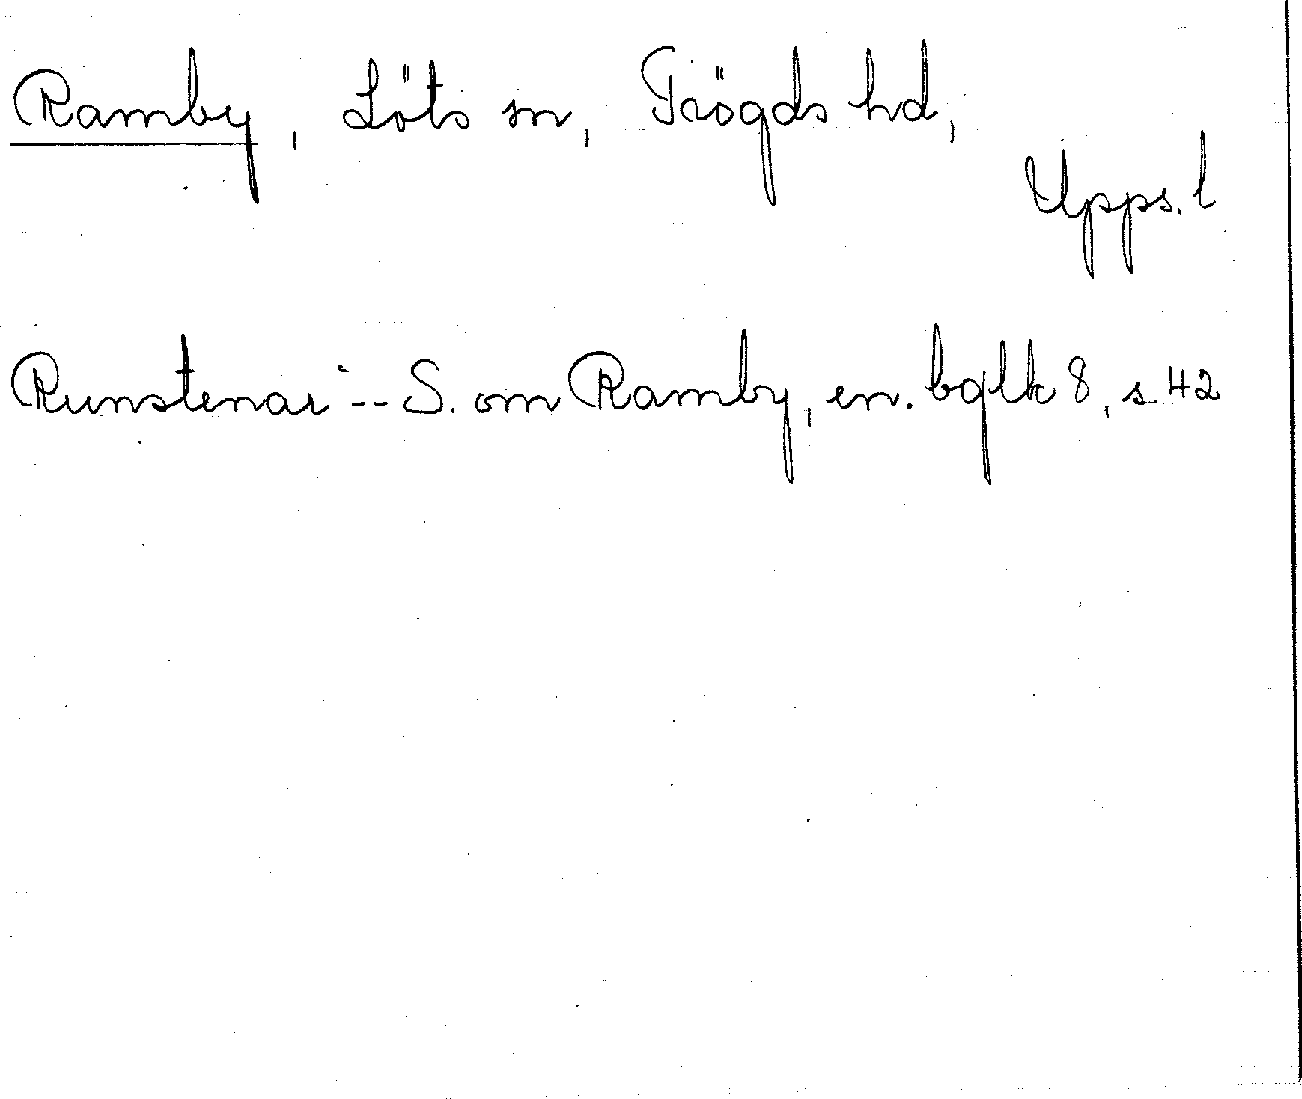 Ramby, Löts sn, Trögds hd,
Upps. l
Runstenar -- S. om Ramby, en. bglk 8, s 42